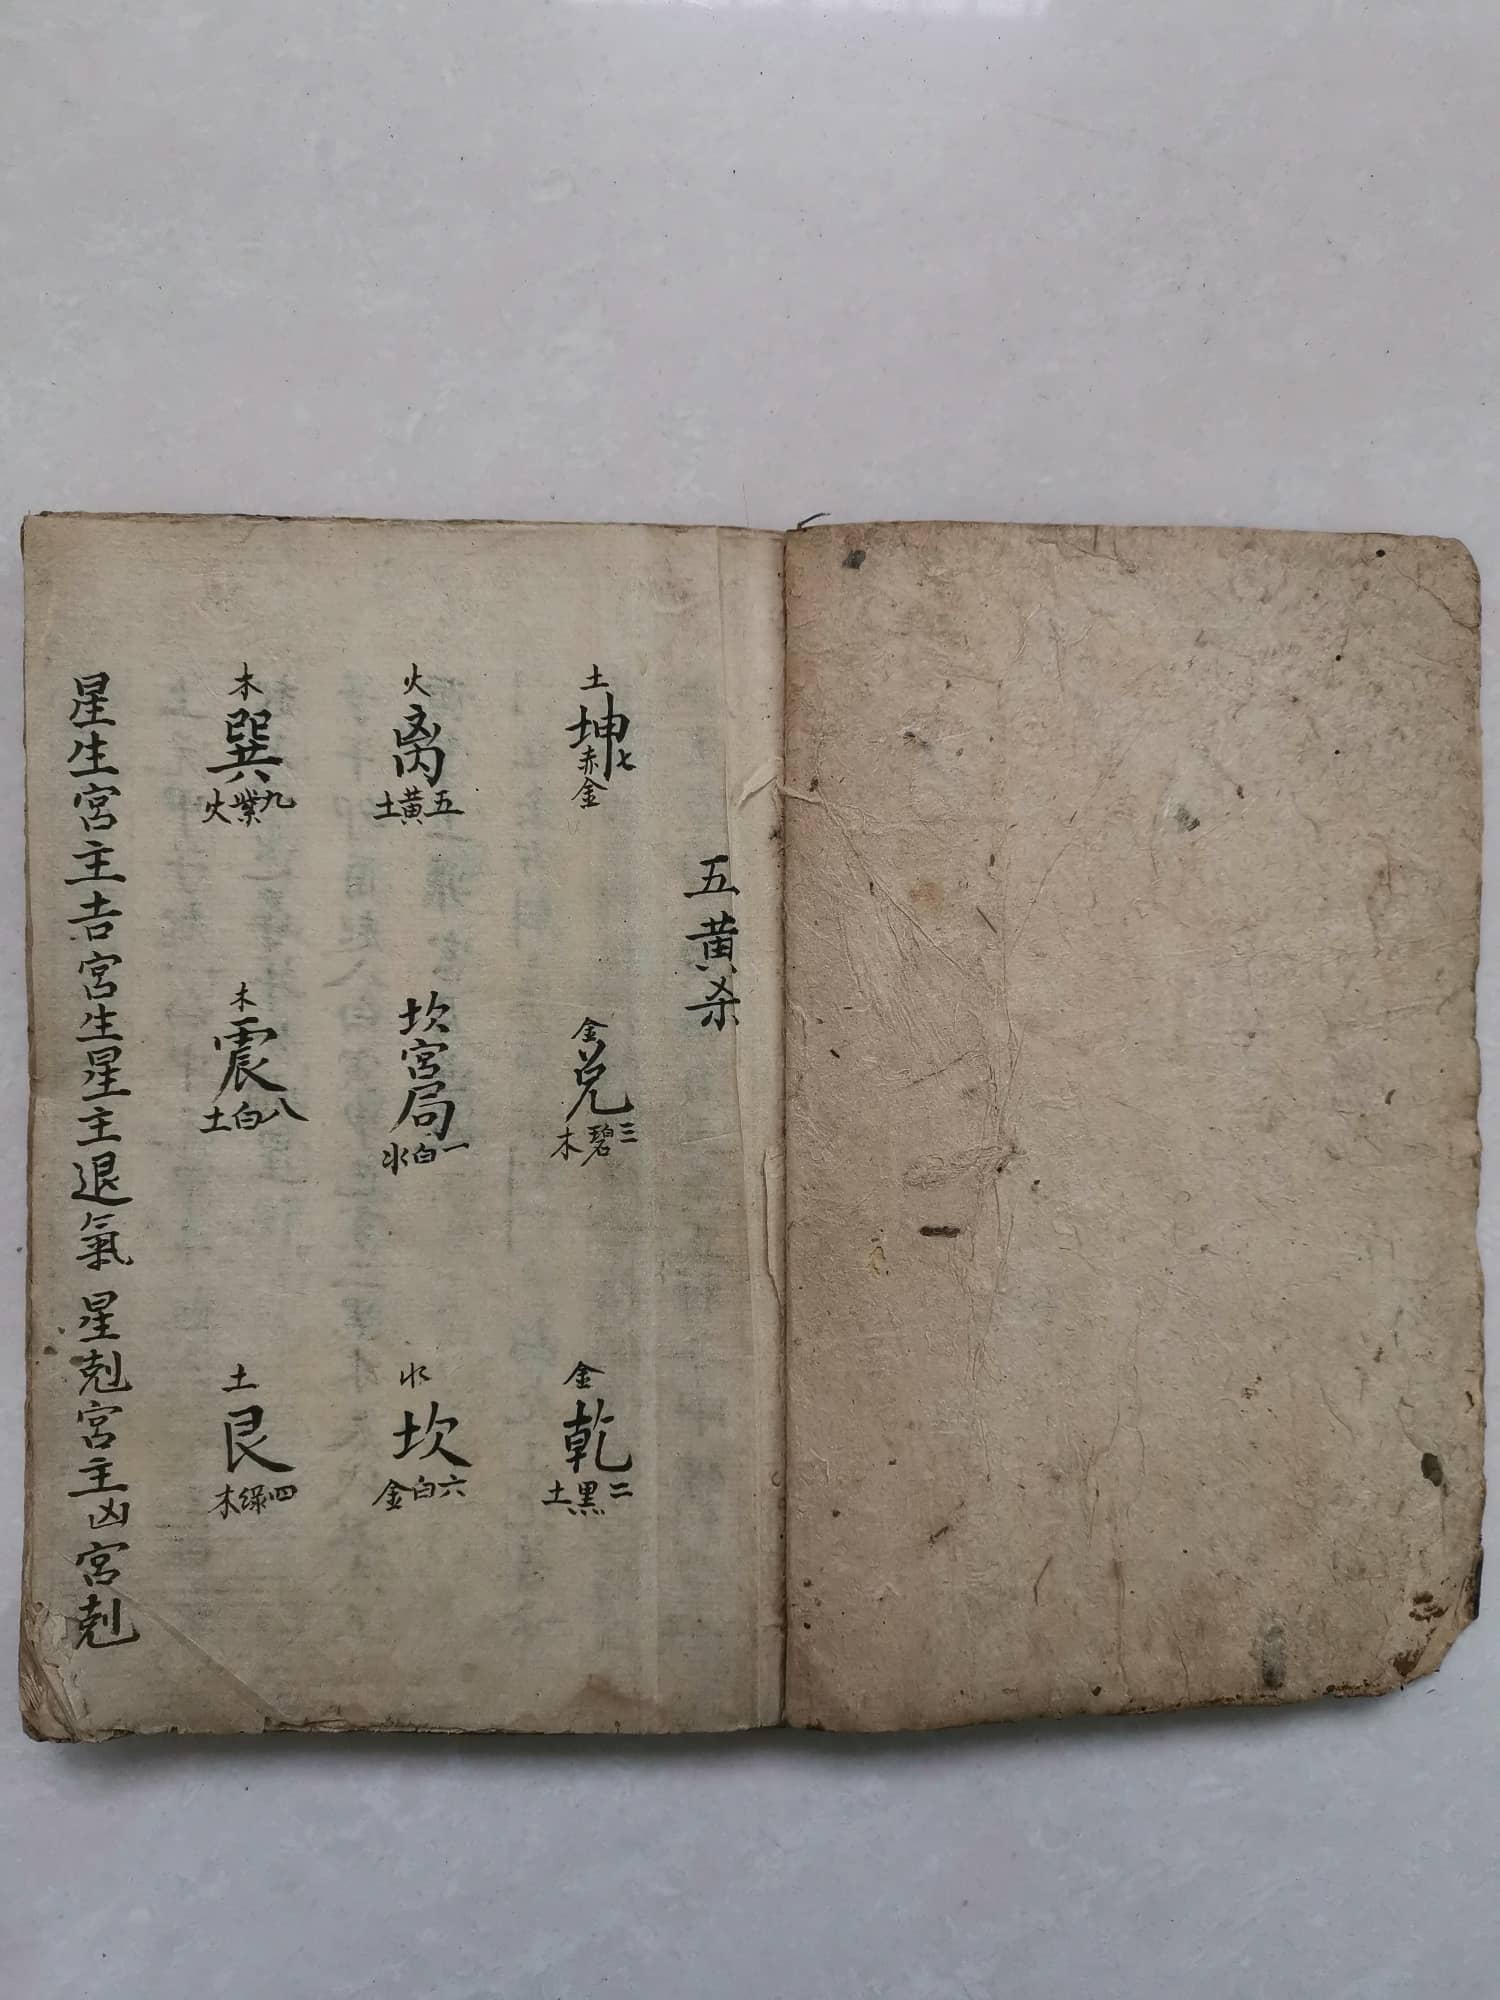 五黄杀
土
坤
七赤金
金
兑
三碧木
金
乾
二黑土
火
离
五黄土
坎宮局
一白水
水
坎
六白金
木
巽
九紫火
木
震
八白土
土
艮
四綠木
星生宮主吉宮生星主退氣 星剋宮主凶宮剋